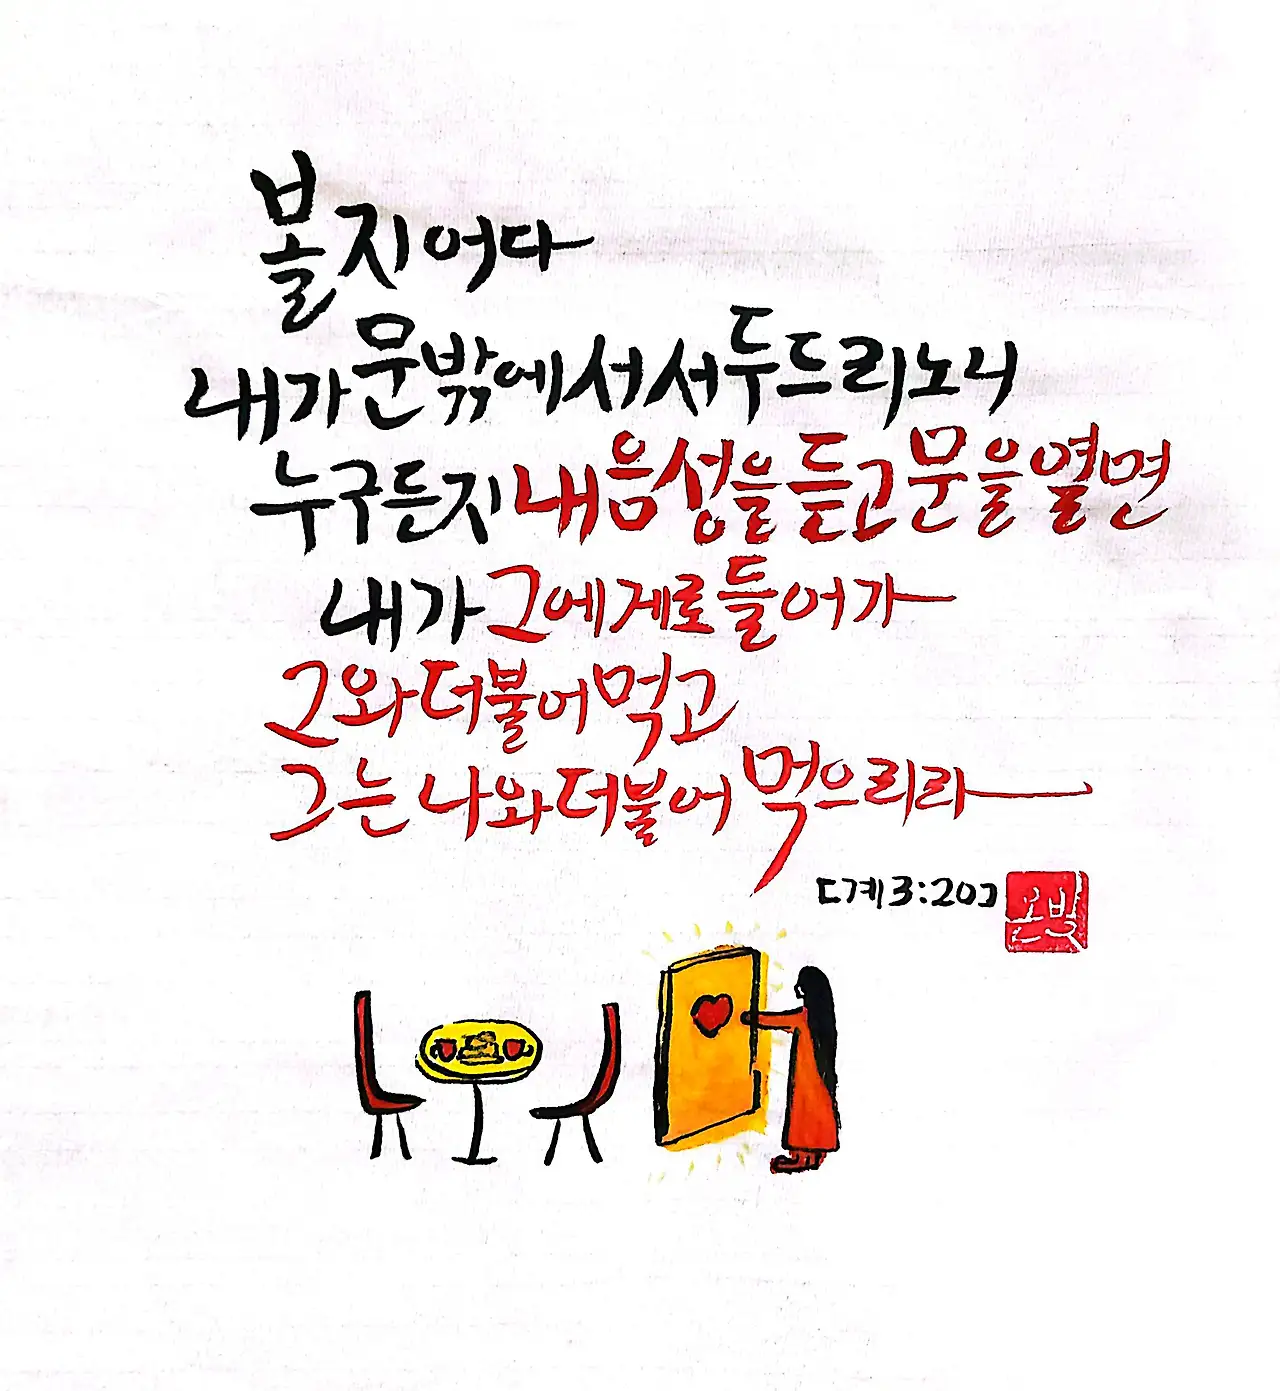 볼지어다
내가 문밖에 서서 두드리노니
누구든지 내 음성을 듣고 문을 열면
내가 그에게로 들어가
그와 더불어 먹고
그는 나와 더불어 먹으리라
[계3:20]
은빛